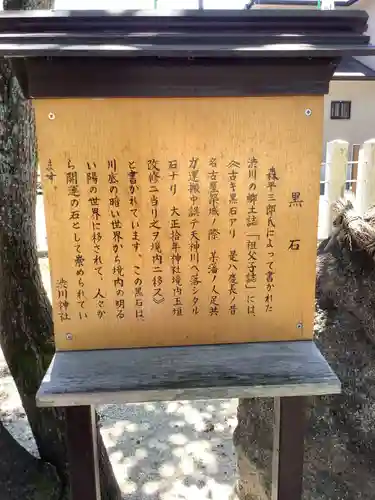 黒石
森平三郎氏によって書かれた
渋川の郷土誌「祖父子誌」には、
《古キ黒石アリ 是ハ慶長ノ昔
名古屋築城ノ際 某藩ノ人足共
ガ運搬中誤テ天神川ヘ落シタル
石ナリ 大正拾年神社境内玉垣
改修ニ当リ之ヲ境内ニ移ス》
と書かれています。この黒石は、
川底の暗い世界から境内の明る
い陽の世界に移されて、人々か
ら開運の石として崇められてい
ます。
渋川神社